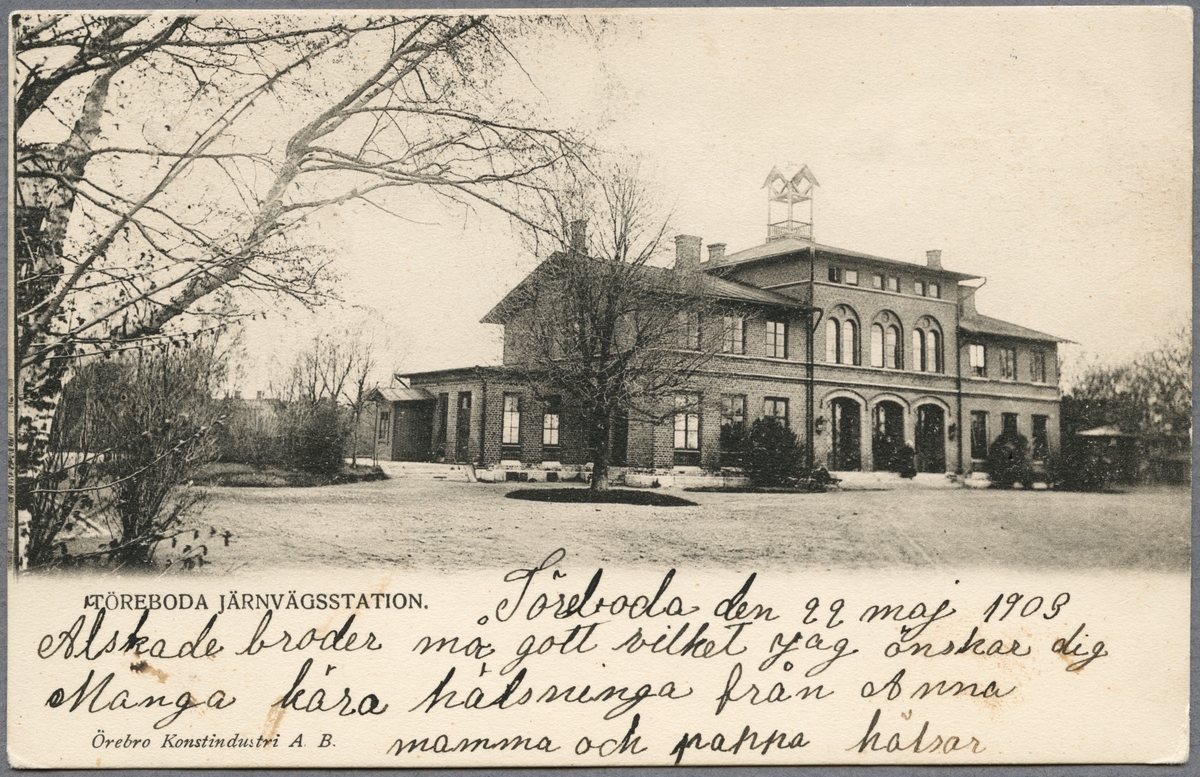 TÖREBODA JÄRNVÄGSSTATION.
Töreboda den 22 maj 1903
Alskade broder må gott vilket jag önskar dig
Manga kära hälsninga från Anna
mamma och pappa hälsar
Örebro Konstindustri A. B.